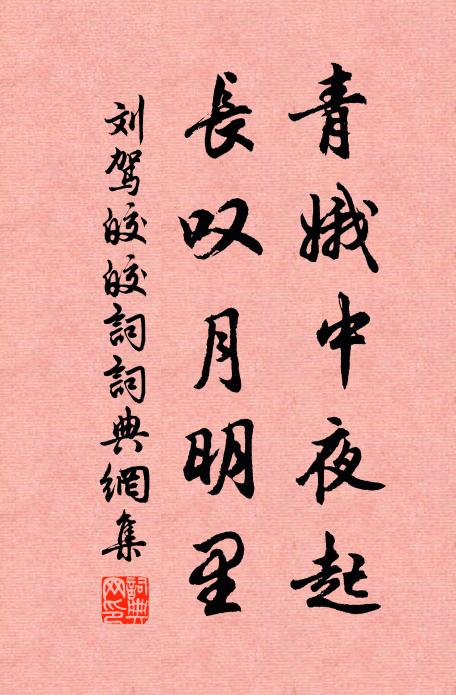 青娥中夜起
長叹月明里
刘驾皎皎詞詞典網集
詞典網印